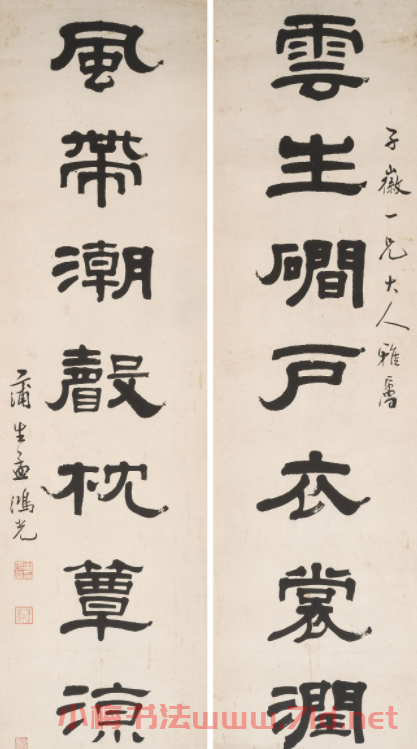 子徽一兄大人雅屬
雲生磵戶衣裳潤
風帶潮聲枕簟涼
蒲生孟鴻光
小梅书法www.7ld.net